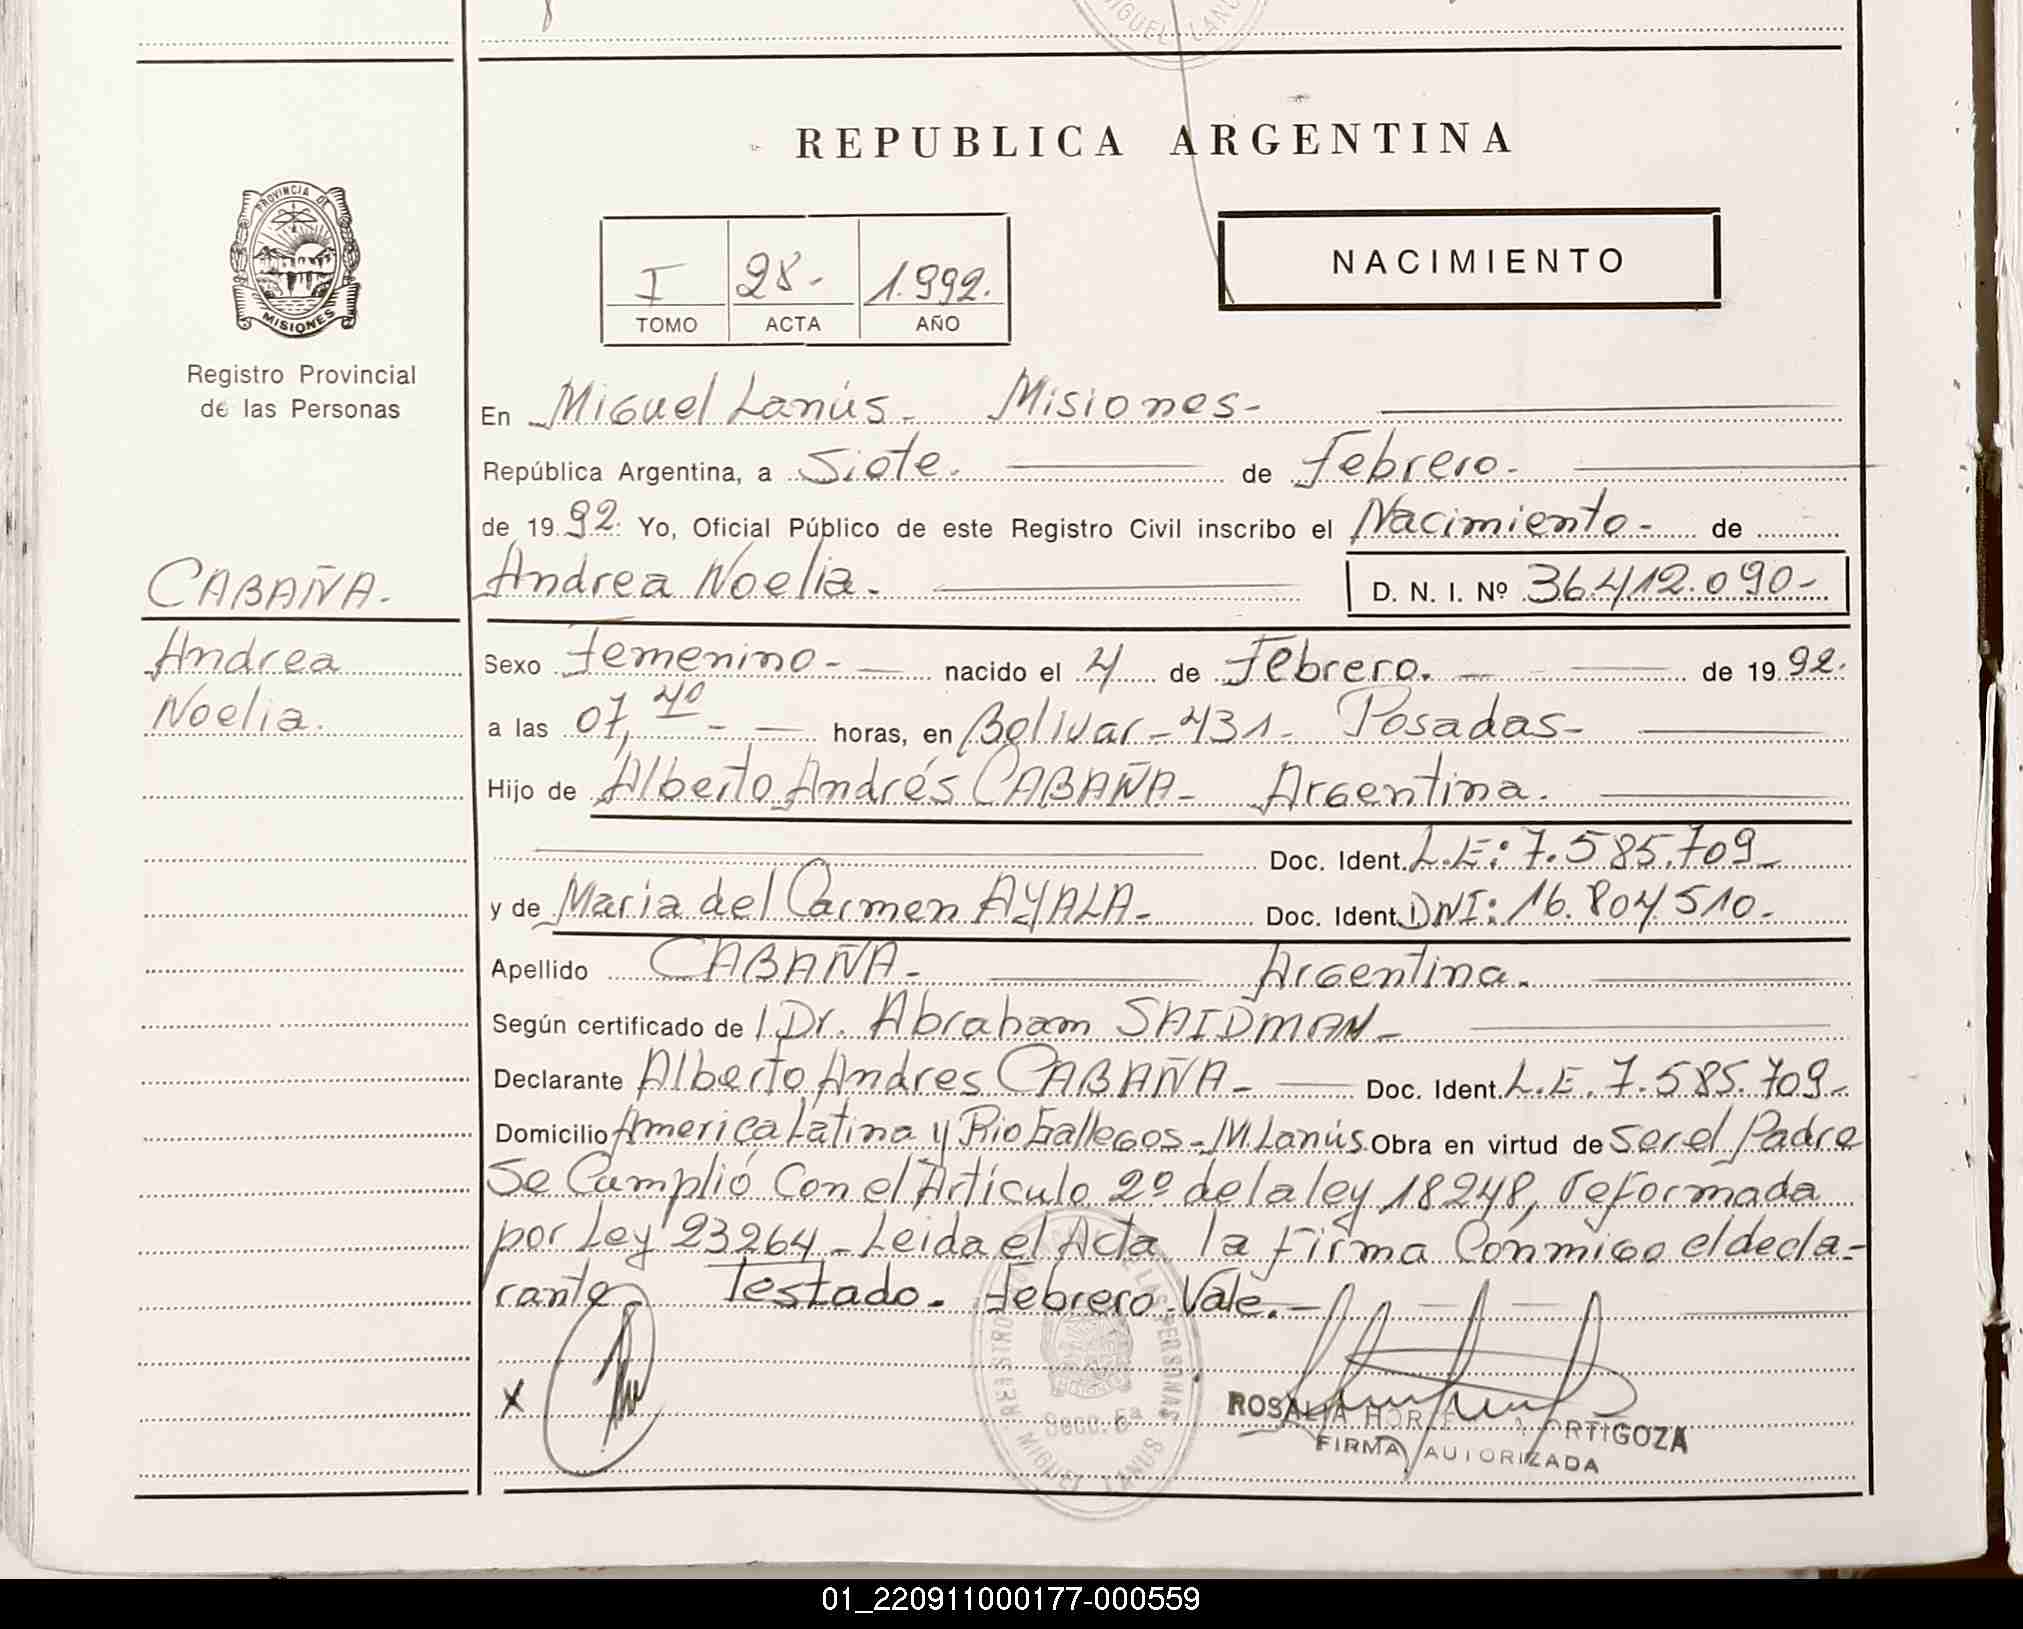 MIGUEL LANUS
REPUBLICA ARGENTINA
PROVINCIA DE
MISIONES
Registro Provincial
de las Personas
I 28- 1.992.
TOMO ACTA AÑO
NACIMIENTO
En Miguel Lanús- Misiones-
República Argentina, a Siete. de Febrero.
de 1992. Yo, Oficial Público de este Registro Civil inscribo el Nacimiento- de
CABAÑA. Andrea Noelia. D. N. I. Nº 36.412.090-
Andrea Sexo Femenino- nacido el 4 de Febrero. de 1992.
Noelia. a las 07,40 - horas, en Bolivar-431- Posadas-
Hijo de Alberto Andrés CABAÑA- Argentina.
Doc. Ident. L.E: 7.585.709-
y de Maria del Carmen AYALA- Doc. Ident. DNI: 16.804.510-
Apellido CABAÑA- Argentina.
Según certificado de l Dr. Abraham SAIDMAN-
Declarante Alberto Andres CABAÑA- Doc. Ident. L.E. 7.585.709-
Domicilio America Latina y Rio Gallegos-M.Lanús. Obra en virtud de Ser el Padre
Se Cumplió Con el Artículo 2º de la ley 18248, reformada
por Ley 23264-Leida el Acta la Firma Conmigo el decla-
rante- Testado. Febrero. Vale.-
X
REGISTRO DE LAS PERSONAS
Secc. 5ª
MIGUEL LANUS
ROSALIA ORTIGOZA
FIRMA AUTORIZADA
01_220911000177-000559